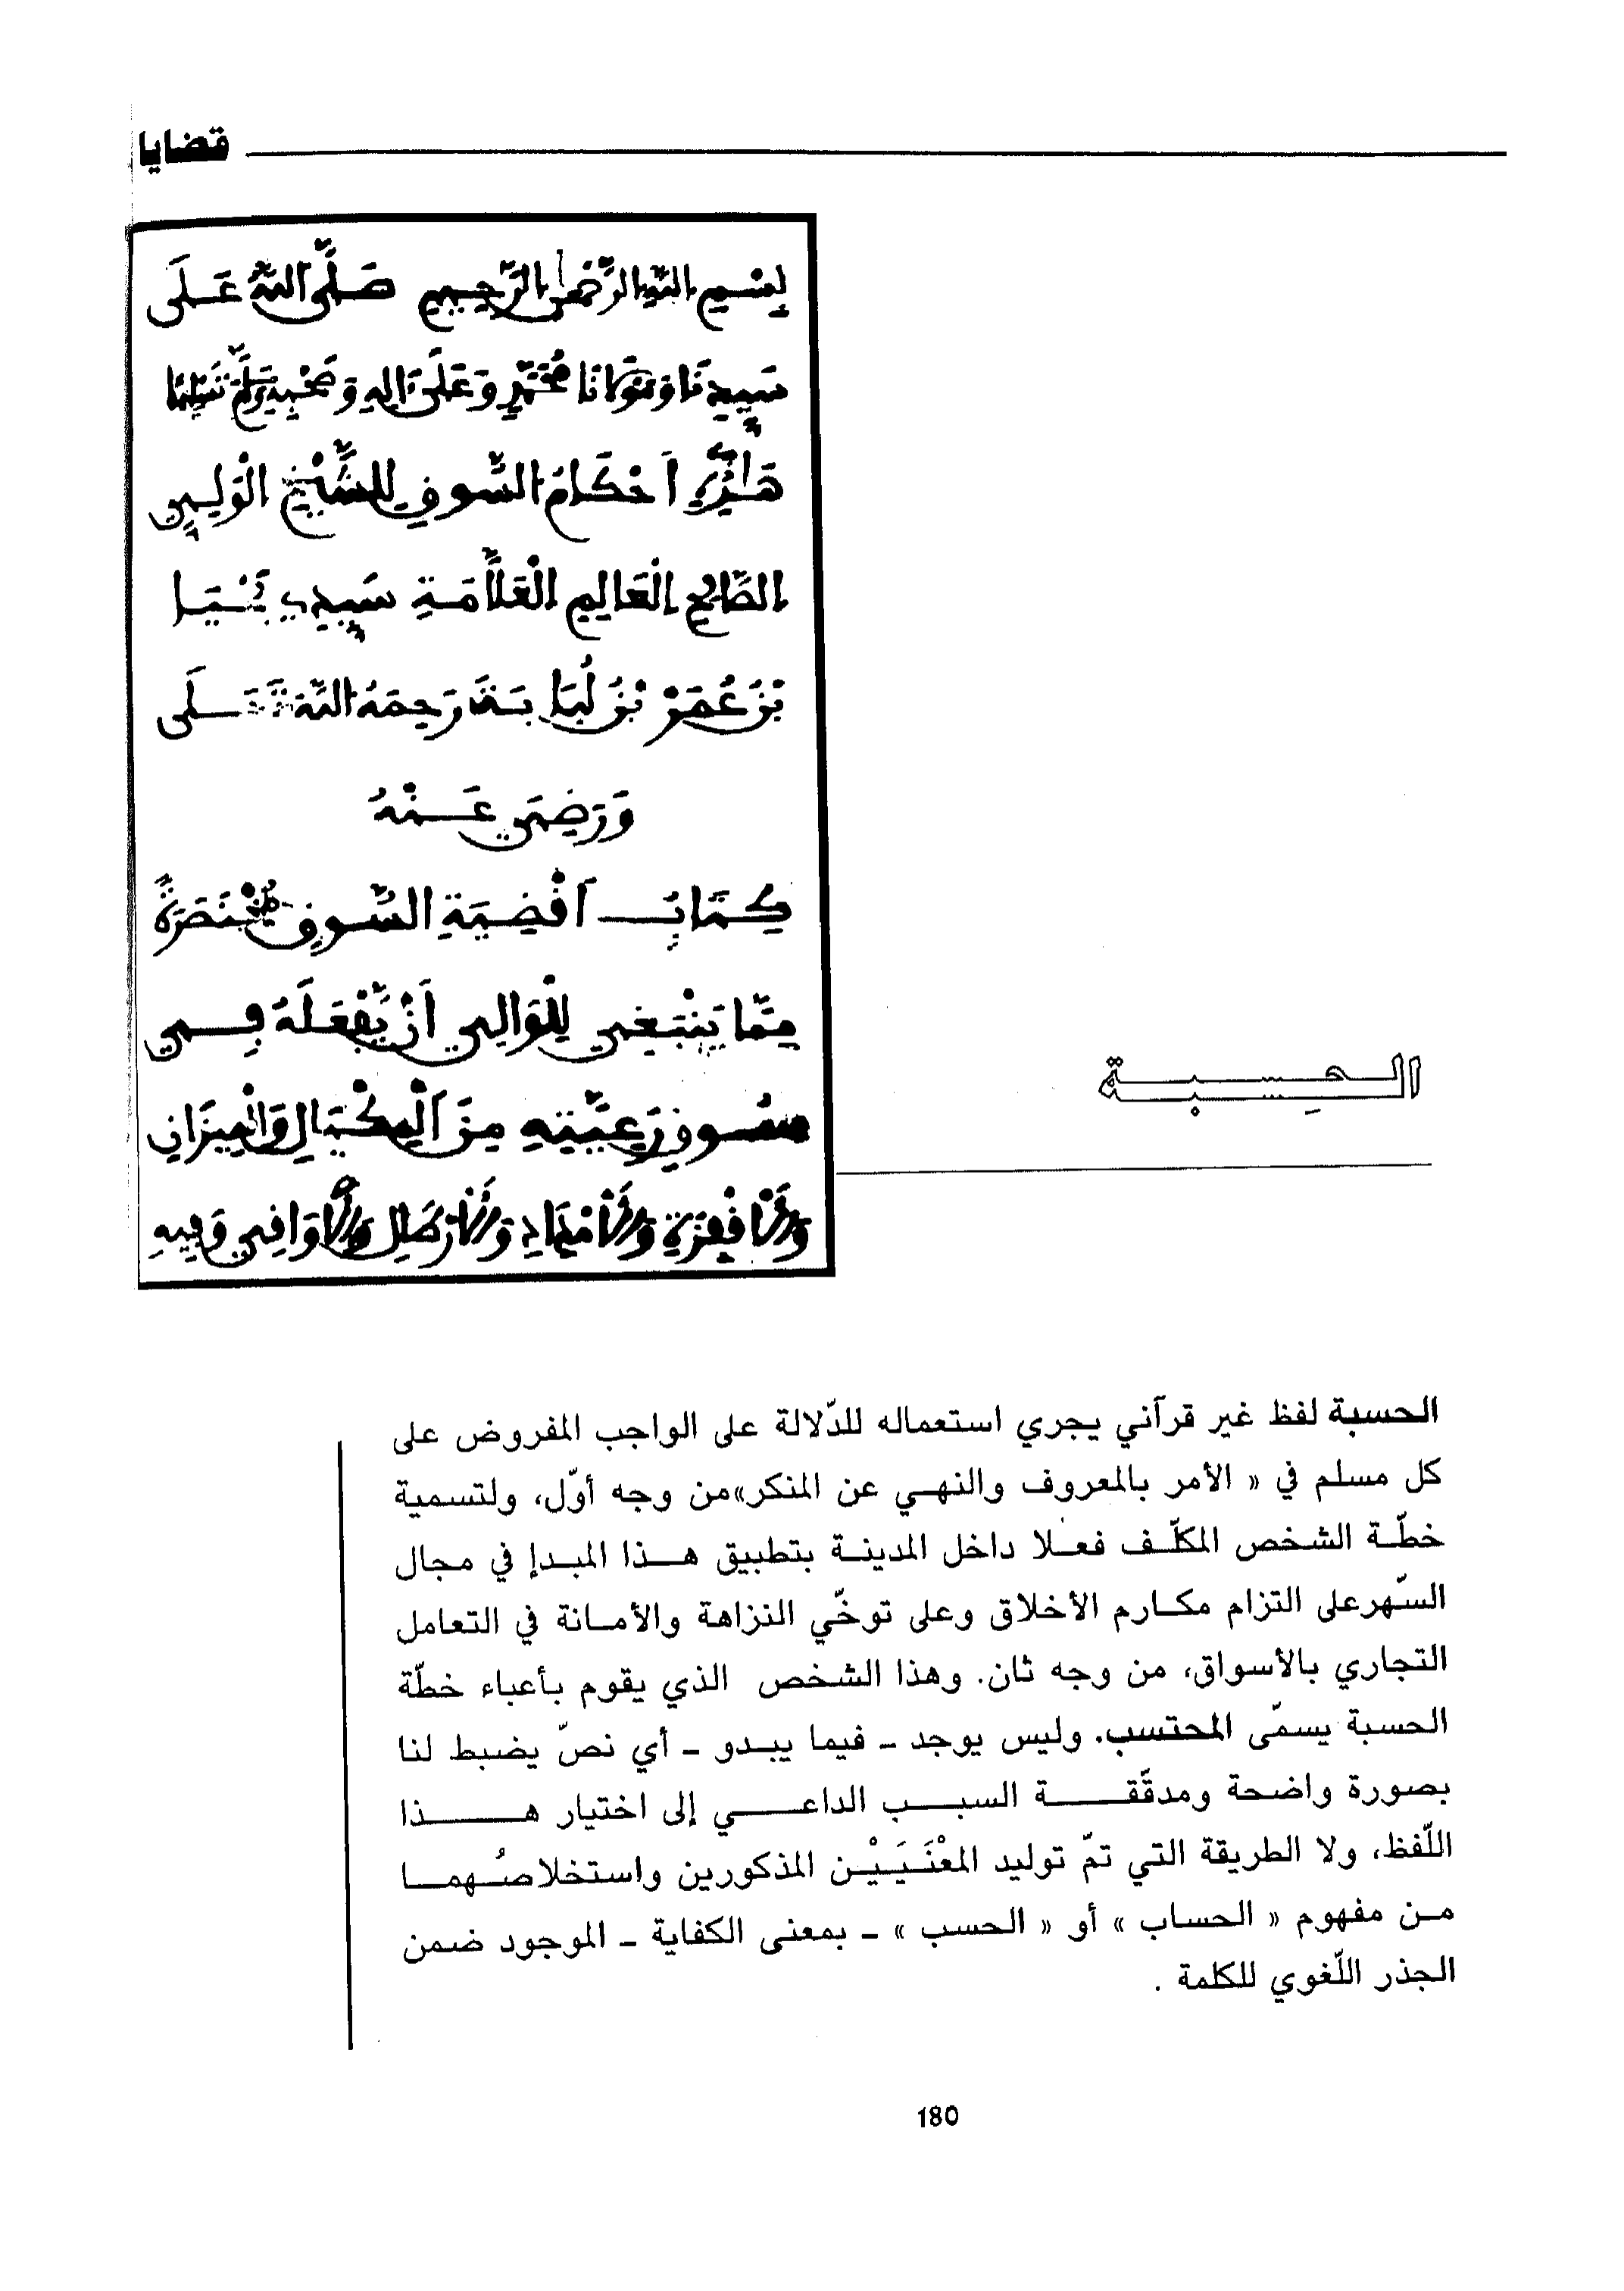 قضايا
بِسْمِ اللَّهِ الرَّحْمَٰنِ الرَّحِيمِ صَلَّى اللَّهُ عَلَى
سَيِّدِنَا وَمَوْلَانَا مُحَمَّدٍ وَعَلَىٰ ءَالِهِ وَصَحْبِهِ وَسَلَّمَ تَسْلِيمًا
هَٰذِهِ أَحْكَامُ السُّوقِ لِلشَّيْخِ الْوَلِيِّ
الصَّالِحِ الْعَالِمِ الْعَلَّامَةِ سَيِّدِي يَحْيَا
بْنُ عُمَرَ بْنُ لُبَابَةَ رَحِمَهُ اللَّهُ تَعَالَى
وَرَضِيَ عَنْهُ
كِتَابُ أَقْضِيَةِ السُّوقِ مُخْتَصَرَةً
مِمَّا يَنْبَغِي لِلْوَالِي أَنْ يَفْعَلَهُ فِي
سُوقِ رَعِيَّتِهِ مِنَ الْمِكْيَالِ وَالْمِيزَانِ
وَالْأَقْفِزَةِ وَالْأَمْدَادِ وَالْأَرْطَالِ وَالْأَوَاقِي وَفِيهِ
الحِسبة
الحسبة لفظ غير قرآني يجري استعماله للدّلالة على الواجب المفروض على
كل مسلم في « الأمر بالمعروف والنهي عن المنكر»من وجه أوّل، ولتسمية
خطّة الشخص المكلّف فعلا داخل المدينة بتطبيق هذا المبدإ في مجال
السّهرعلى التزام مكارم الأخلاق وعلى توخّي النزاهة والأمانة في التعامل
التجاري بالأسواق، من وجه ثان. وهذا الشخص الذي يقوم بأعباء خطّة
الحسبة يسمّى المحتسب. وليس يوجد - فيما يبدو - أي نصّ يضبط لنا
بصورة واضحة ومدقّقة السبب الداعي إلى اختيار هذا
اللّفظ، ولا الطريقة التي تمّ توليد المعْنَيَيْن المذكورين واستخلاصُهما
من مفهوم « الحساب » أو « الحسب » - بمعنى الكفاية - الموجود ضمن
الجذر اللّغوي للكلمة .
180